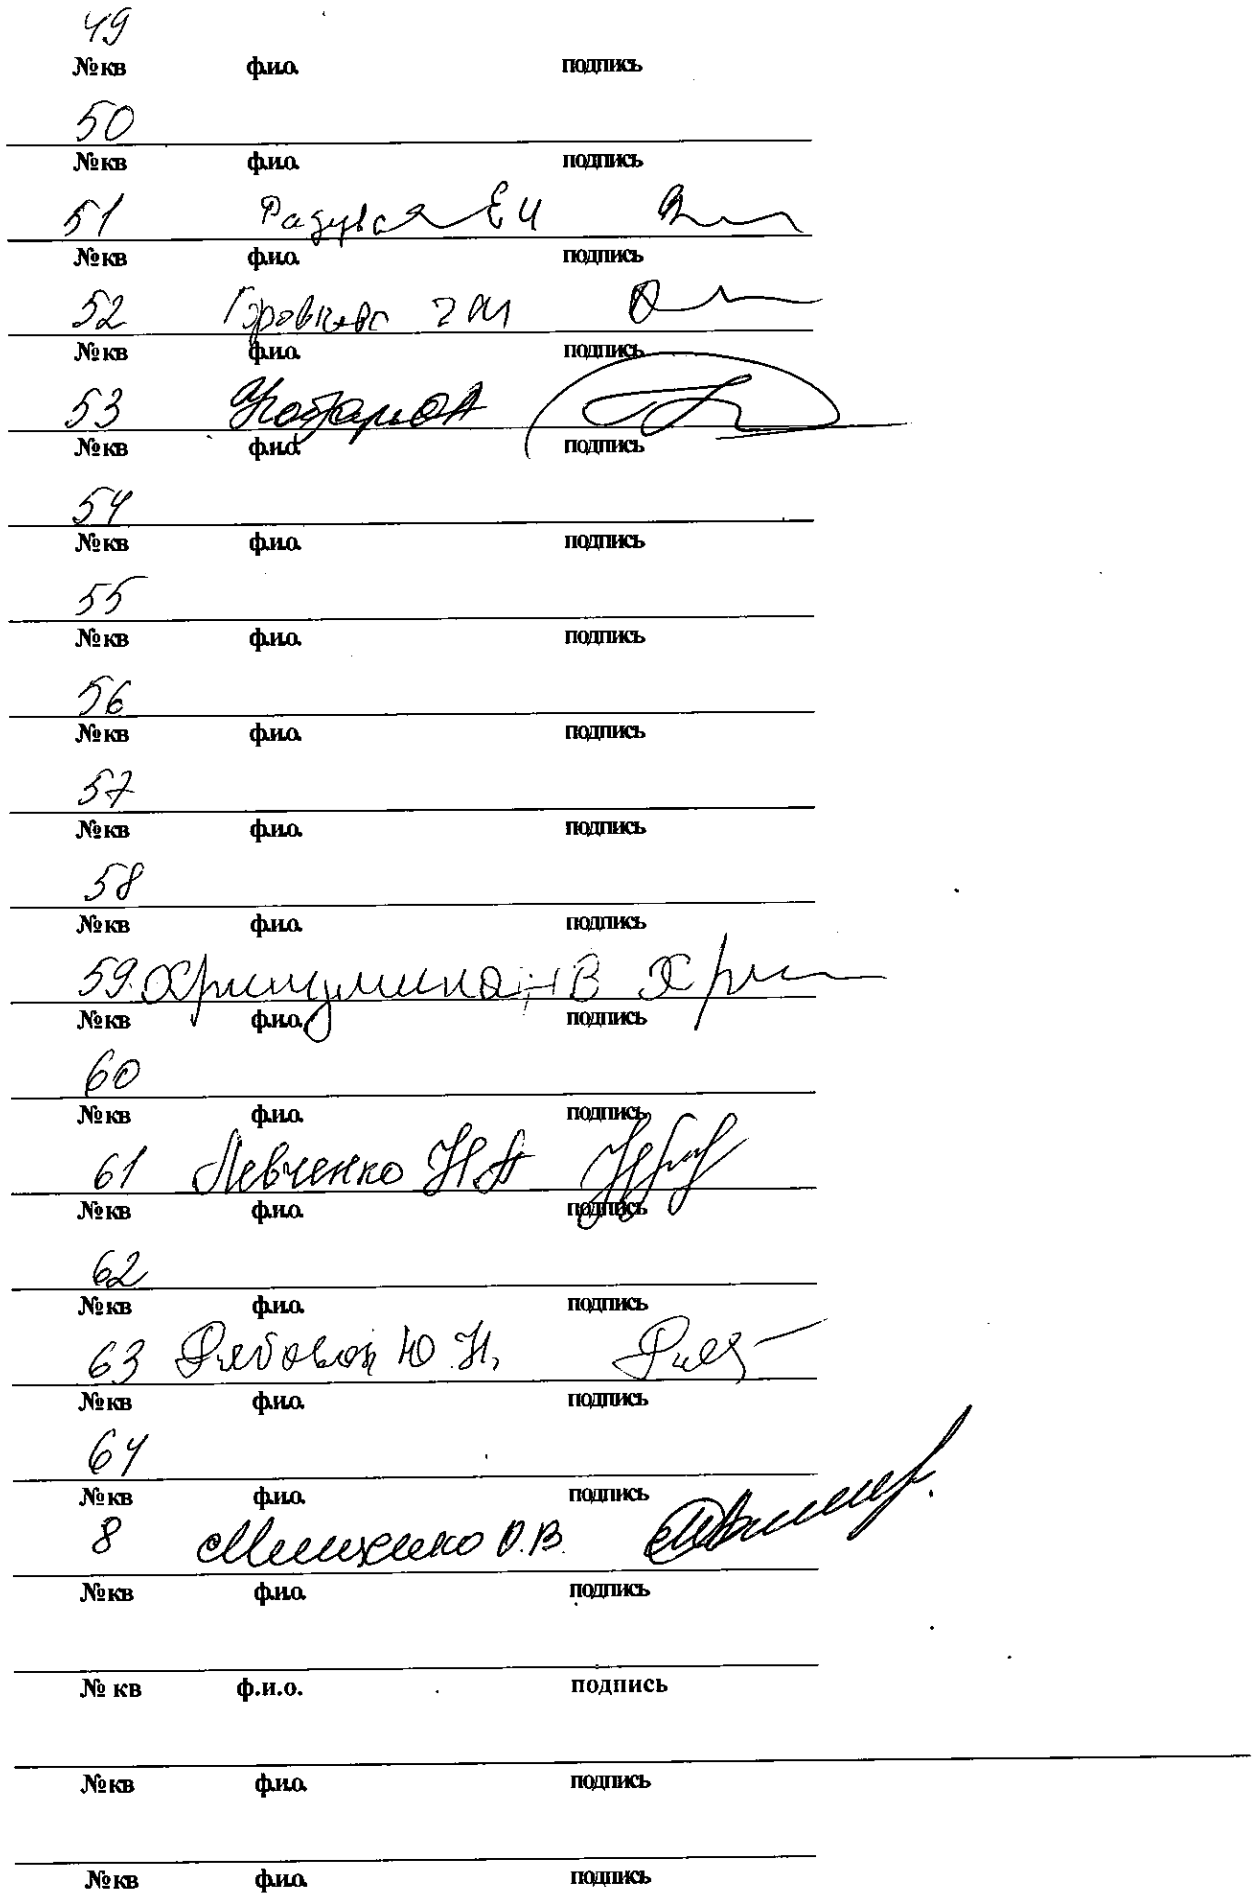 49
№ кв ф.и.о. подпись
50
№ кв ф.и.о. подпись
51 Е И
№ кв ф.и.о. подпись
52
№ кв ф.и.о. подпись
53
№ кв ф.и.о. подпись
54
№ кв ф.и.о. подпись
55
№ кв ф.и.о. подпись
56
№ кв ф.и.о. подпись
57
№ кв ф.и.о. подпись
58
№ кв ф.и.о. подпись
59.
№ кв ф.и.о. подпись
60
№ кв ф.и.о. подпись
61 Левченко Н А
№ кв ф.и.о. подпись
62
№ кв ф.и.о. подпись
63 Ю. Н.
№ кв ф.и.о. подпись
64
№ кв ф.и.о. подпись
8 Мищенко О.В.
№ кв ф.и.о. подпись
№ кв ф.и.о. подпись
№ кв ф.и.о. подпись
№ кв ф.и.о. подпись